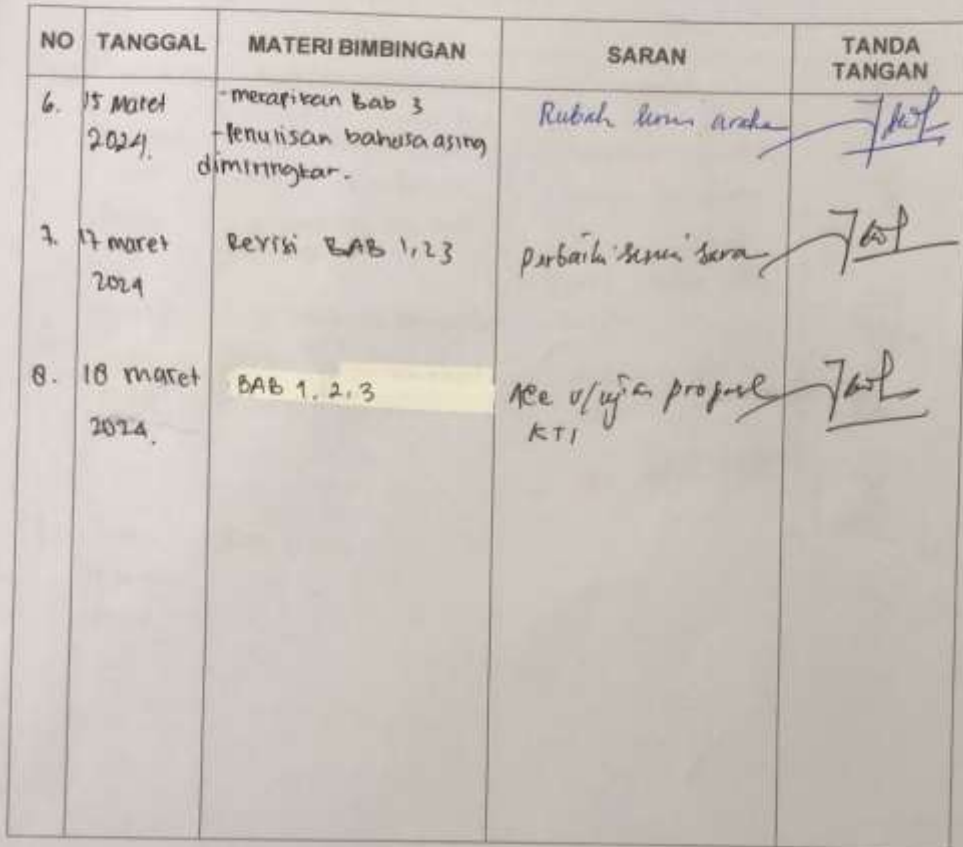 NO TANGGAL MATERI BIMBINGAN SARAN TANDA TANGAN
6. 15 Maret 2024.
-merapikan Bab 3
-Penulisan bahasa asing
dimiringkan.
Rubah
7. 17 maret 2024
Revisi BAB 1,2 3
Perbaiki sesuai saran
8. 18 maret 2024.
BAB 1. 2. 3
ACC u/ujian proposal
KTI